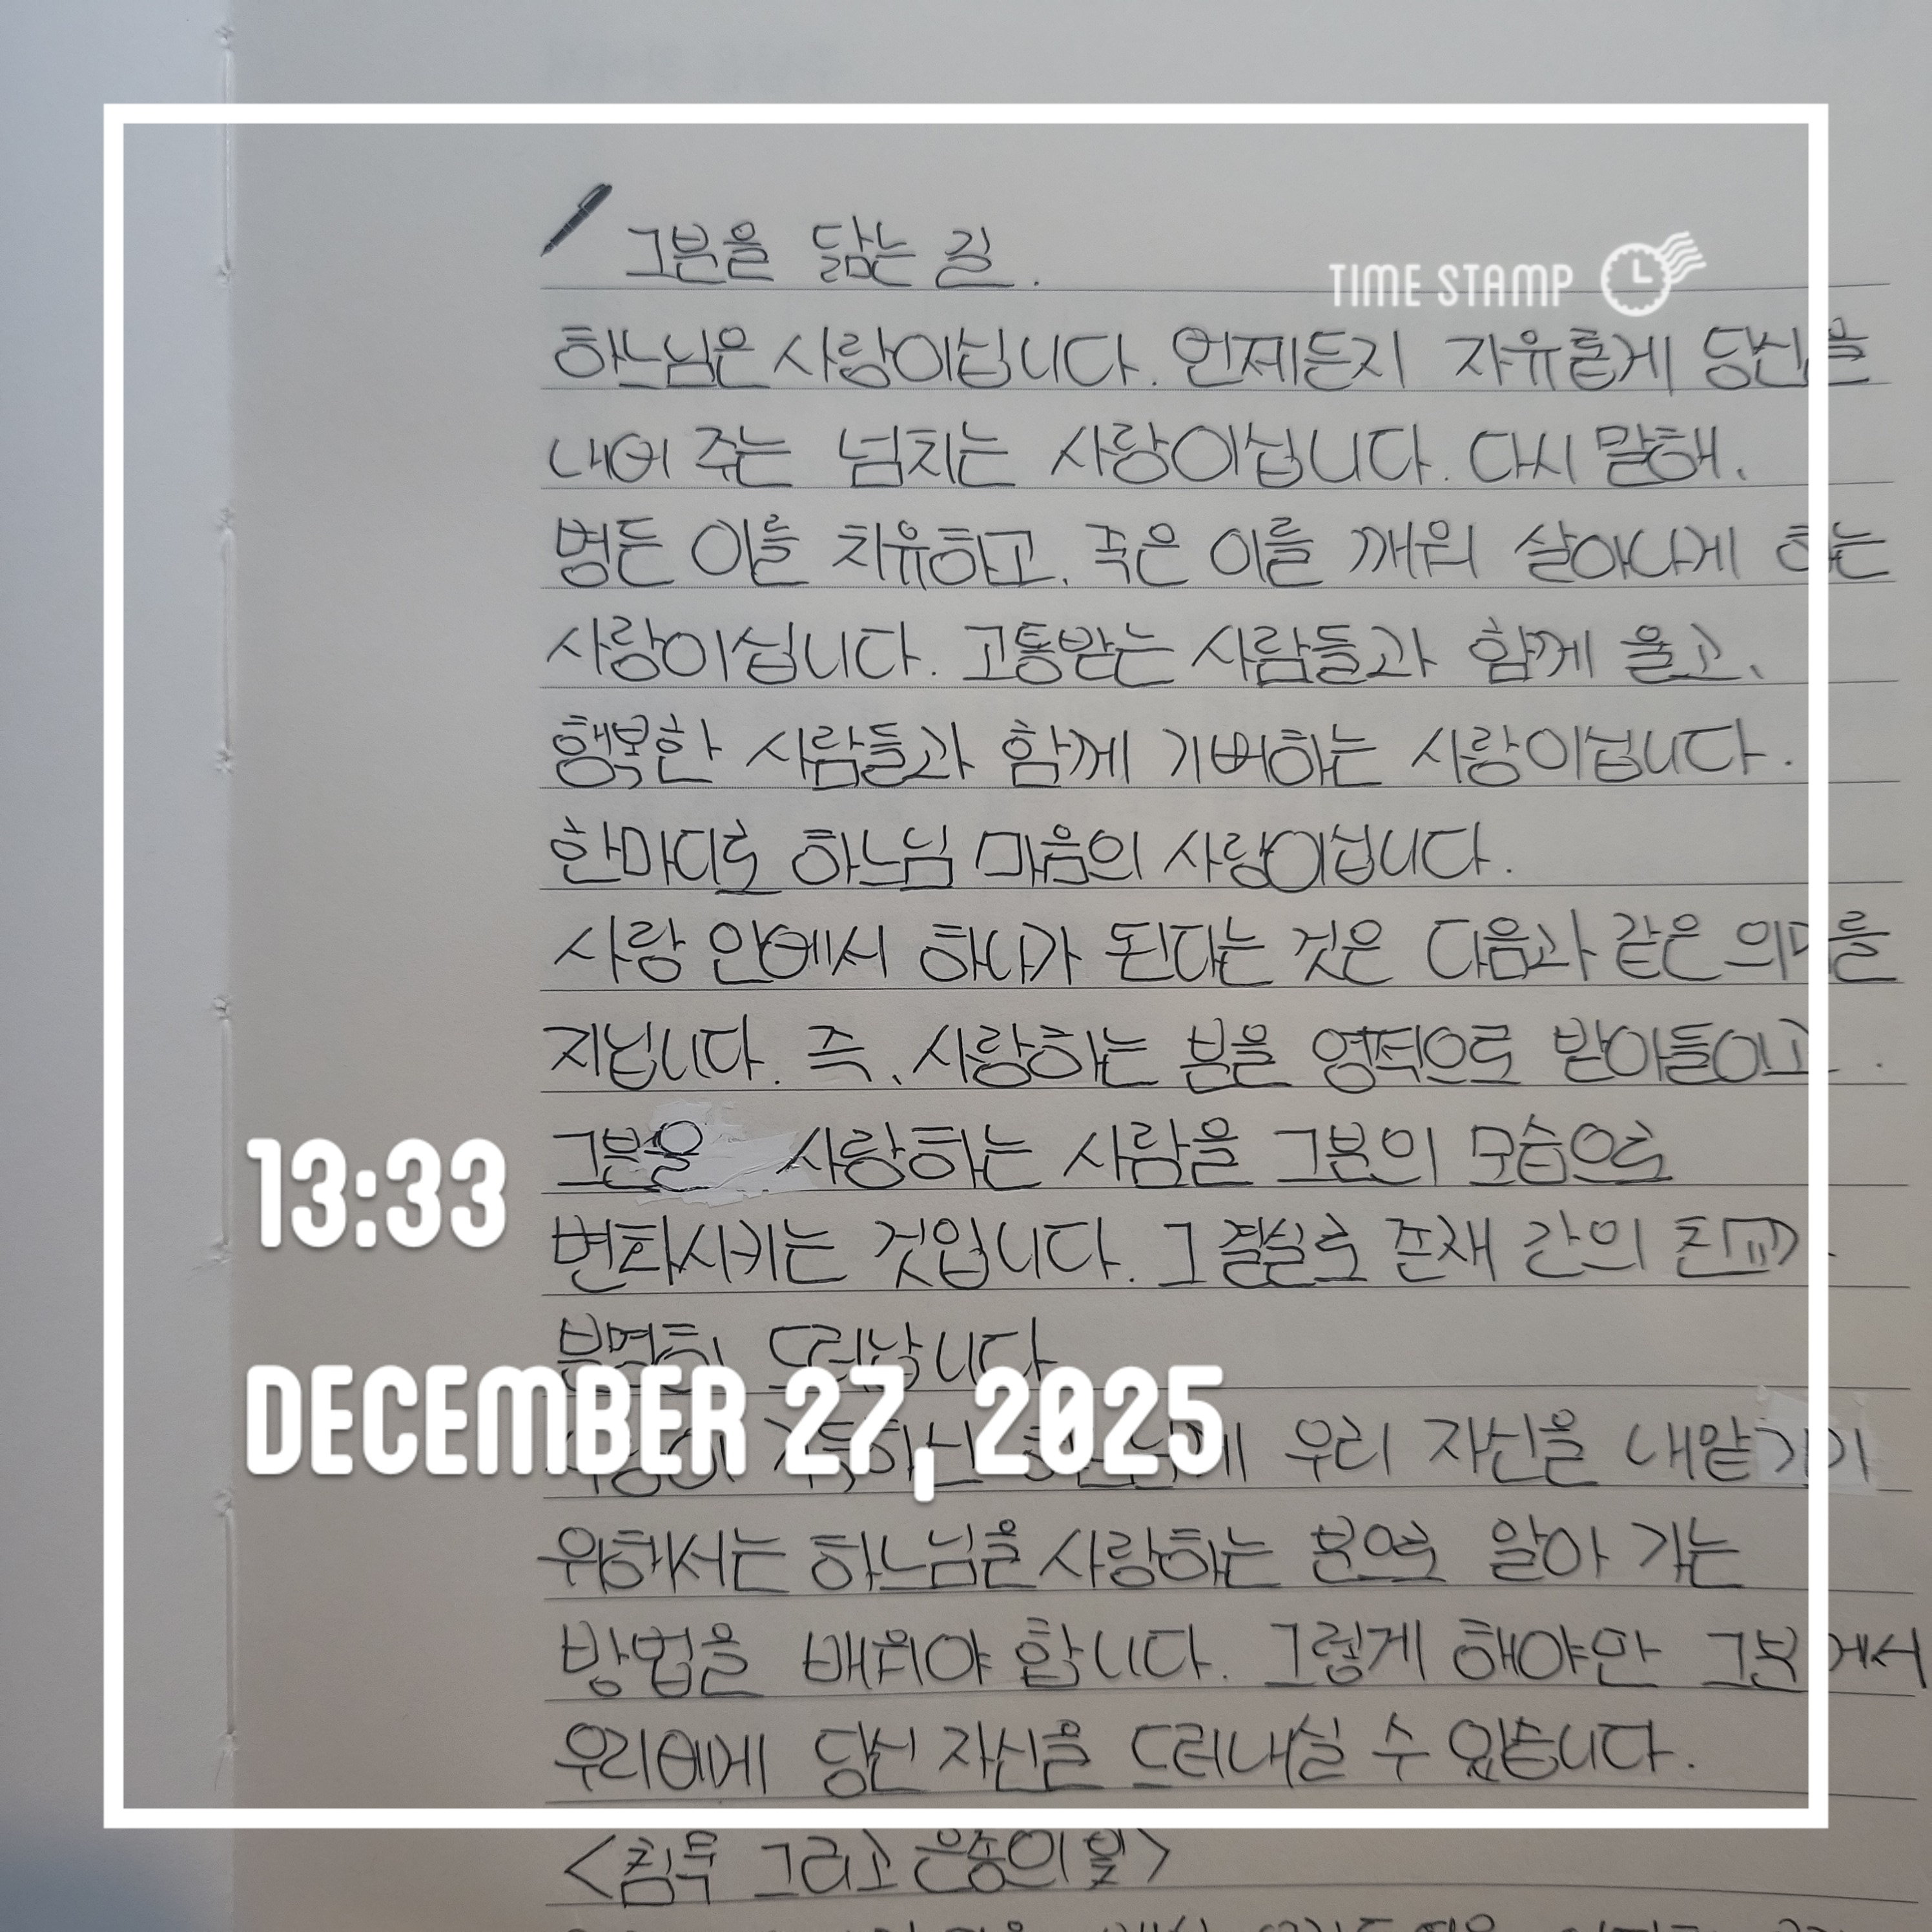 그분을 닮는 길.
TIME STAMP
하느님은 사랑이십니다. 언제든지 자유롭게 당신을
내어 주는 넘치는 사랑이십니다. 다시 말해,
병든 이를 치유하고, 죽은 이를 깨워 살아나게 하는
사랑이십니다. 고통받는 사람들과 함께 울고,
행복한 사람들과 함께 기뻐하는 사랑이십니다.
한마디로 하느님 마음의 사랑이십니다.
사랑 안에서 하나가 된다는 것은 다음과 같은 의미를
지닙니다. 즉, 사랑하는 분을 영적으로 받아들이고.
그분을 사랑하는 사람을 그분의 모습으로
13:33
변화시키는 것입니다. 그 결실로 존재 간의 친교가
분명히 드러납니다
DECEMBER 27, 2025
우리 자신을 내맡기기
위해서는 하느님을 사랑하는 분으로 알아 가는
방법을 배워야 합니다. 그렇게 해야만 그분께서
우리에게 당신 자신을 드러내실 수 있습니다.
<침묵 그리고 은총의 빛>